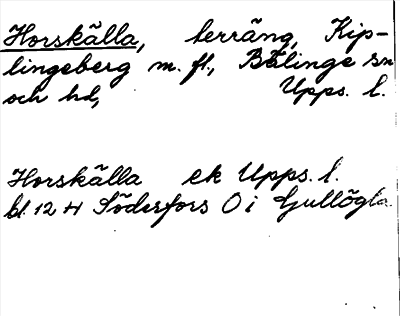 Horskälla, terräng, Kip-
lingeberg m. fl., Bälinge sn
och hd, Upps. l.
Horskälla ek Upps. l.
bl. 12 H Söderfors O i Gullögla